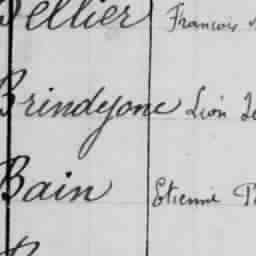 Bellier François
Brindejonc Léon
Bain Etienne